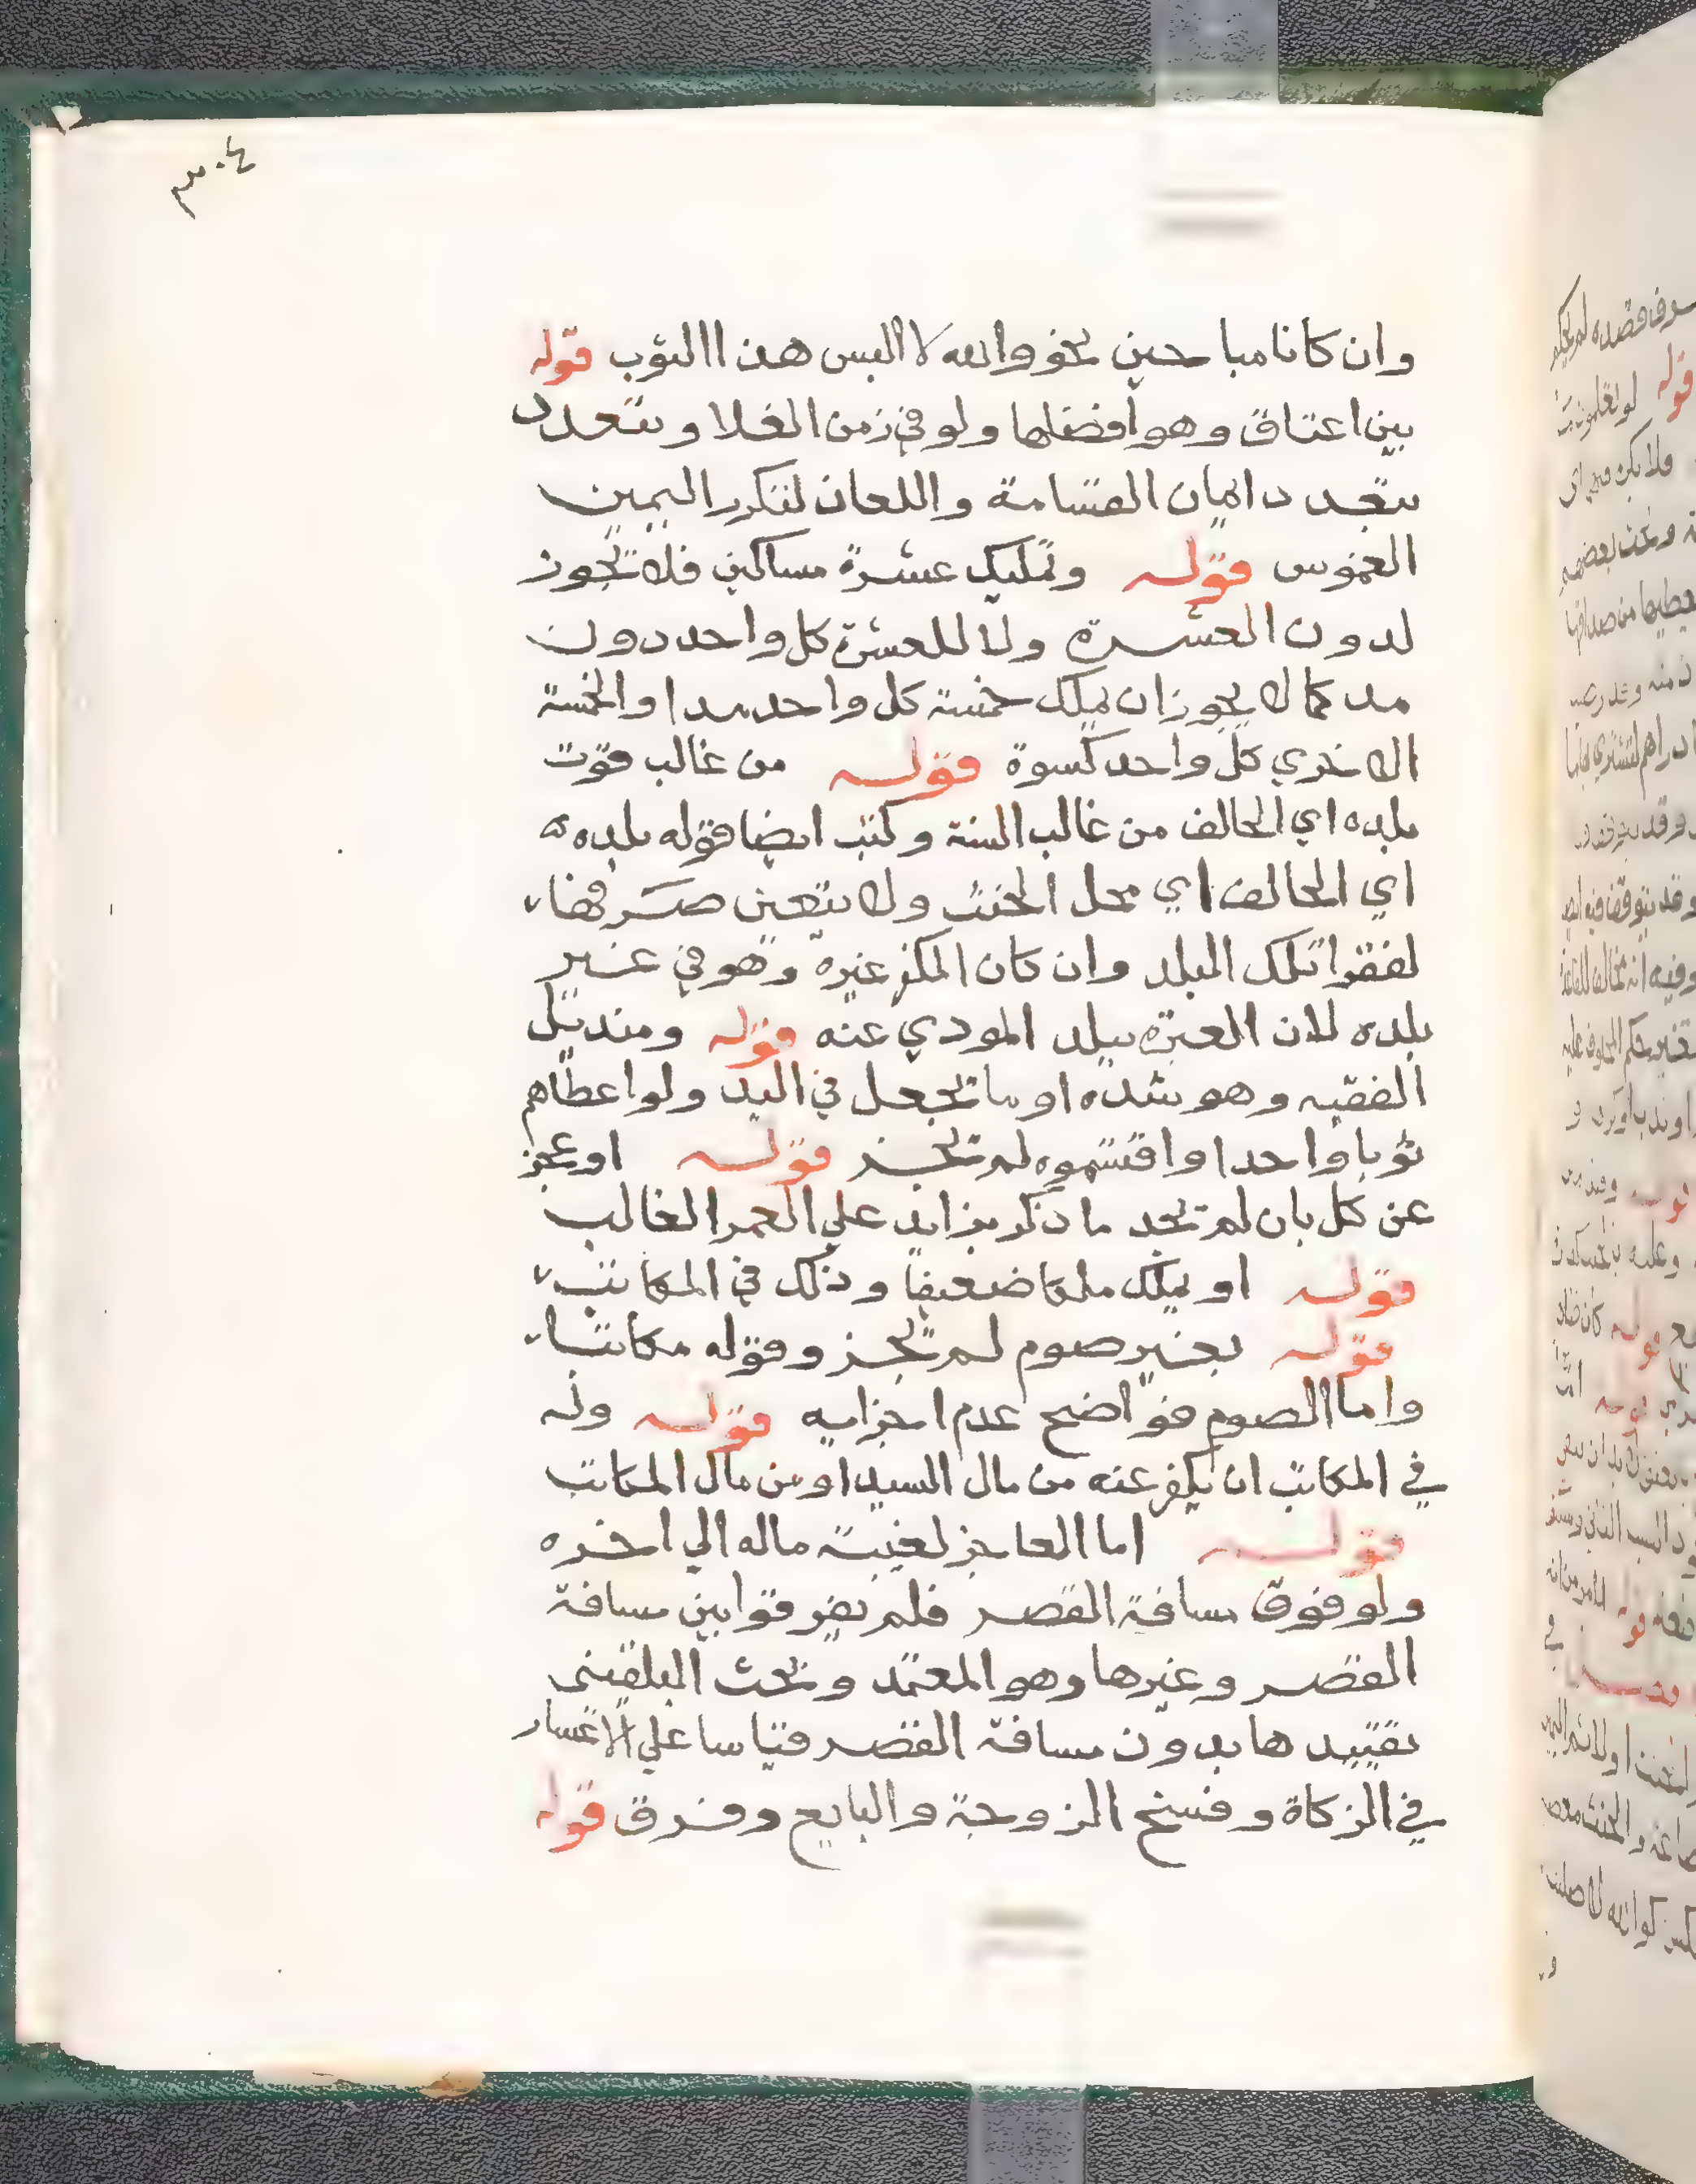 ٣٠٤
وان كانا مباحين نحو والله لا البس هذا الثوب قوله
بين اعتاق وهو افضلها ولو في زمن الغلا وتتعدد
بتعدد ايمان القسامة واللعان لتكرر اليمين
الغموس قوله وتمليك عشرة مساكين فلا تجوز
لدون العشرة ولا للعشرة كل واحد دون
مد كما لا يجوز ان يملك خمسة كل واحد مدا والخمسة
الاخري كل واحد كسوة قوله من غالب قوت
بلده اي الحالف من غالب السنة وكتب ايضا قوله بلده
اي الحالف اي محل الحنث ولا يتعين صرفها
لفقرا تلك البلد وان كان المكفر غيره وهو في غير
بلده لان العبرة ببلد المودي عنه قوله ومنديل
الفقيه وهو شده او ما تجعل في اليد ولو اعطاهم
ثوبا واحدا واقتسموه لم تجز قوله او عجز
عن كل بان لم تجد ما ذكر بزايد علي العمر الغالب
قوله او يملك ملكا ضعيفا وذلك في المكاتب
قوله بغير صوم لم تجز وقوله مكاتبا
واما الصوم فواضح عدم اجزايه قوله وله
في المكاتب ان يكفر عنه من مال السيد او من مال المكاتب
قوله اما العاجز لغيبة ماله الي اخره
ولو فوق مسافة القصر فلم يفرقوا بين مسافة
القصر وغيرها وهو المعتمد وبحث البلقيني
تقييدها بدون مسافة القصر قياسا علي الاعسار
في الزكاة وفسخ الزوجة والبايع وفرق قوله